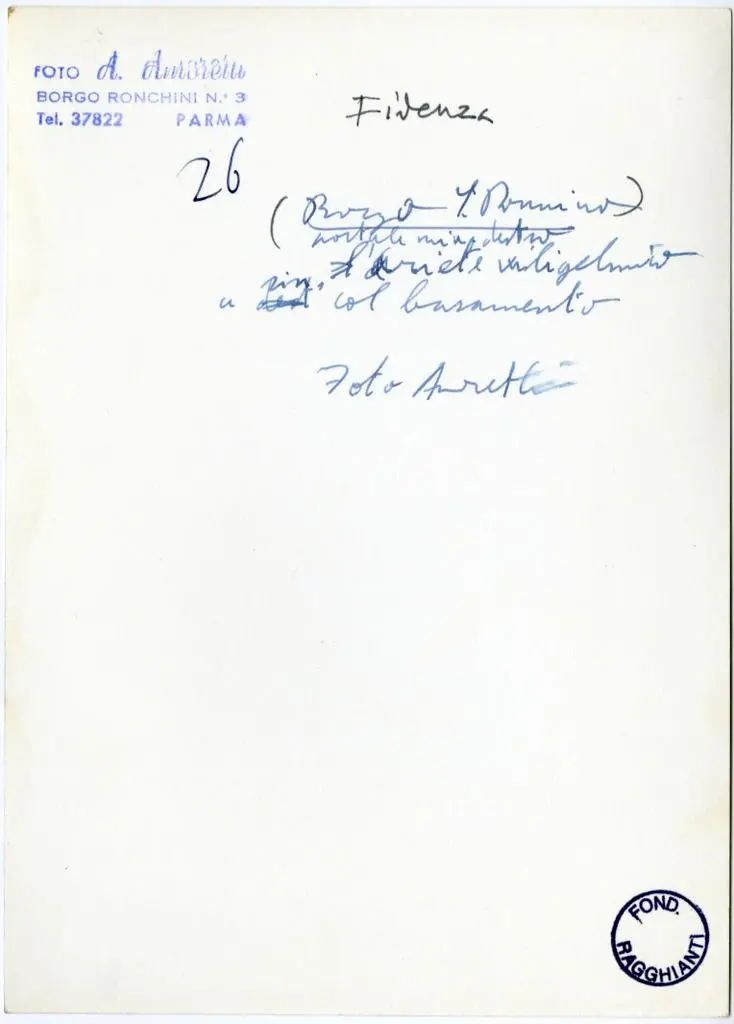 FOTO A. Amoretti
BORGO RONCHINI N.° 3
Tel. 37822 PARMA
Fidenza
26
(Borgo S. Donnino)
portale min. destro
l'ariete wiligelmico
a sin. col basamento
Foto Amoretti
FOND.
RAGGHIANTI